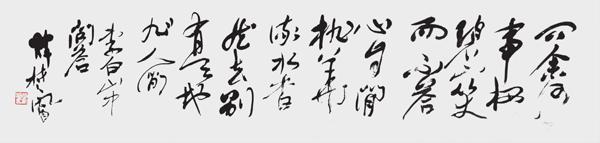 问余何
事栖
碧山笑
而不答
心自闲
桃花
流水杳
然去别
有天地
非人间
李白山中
问答